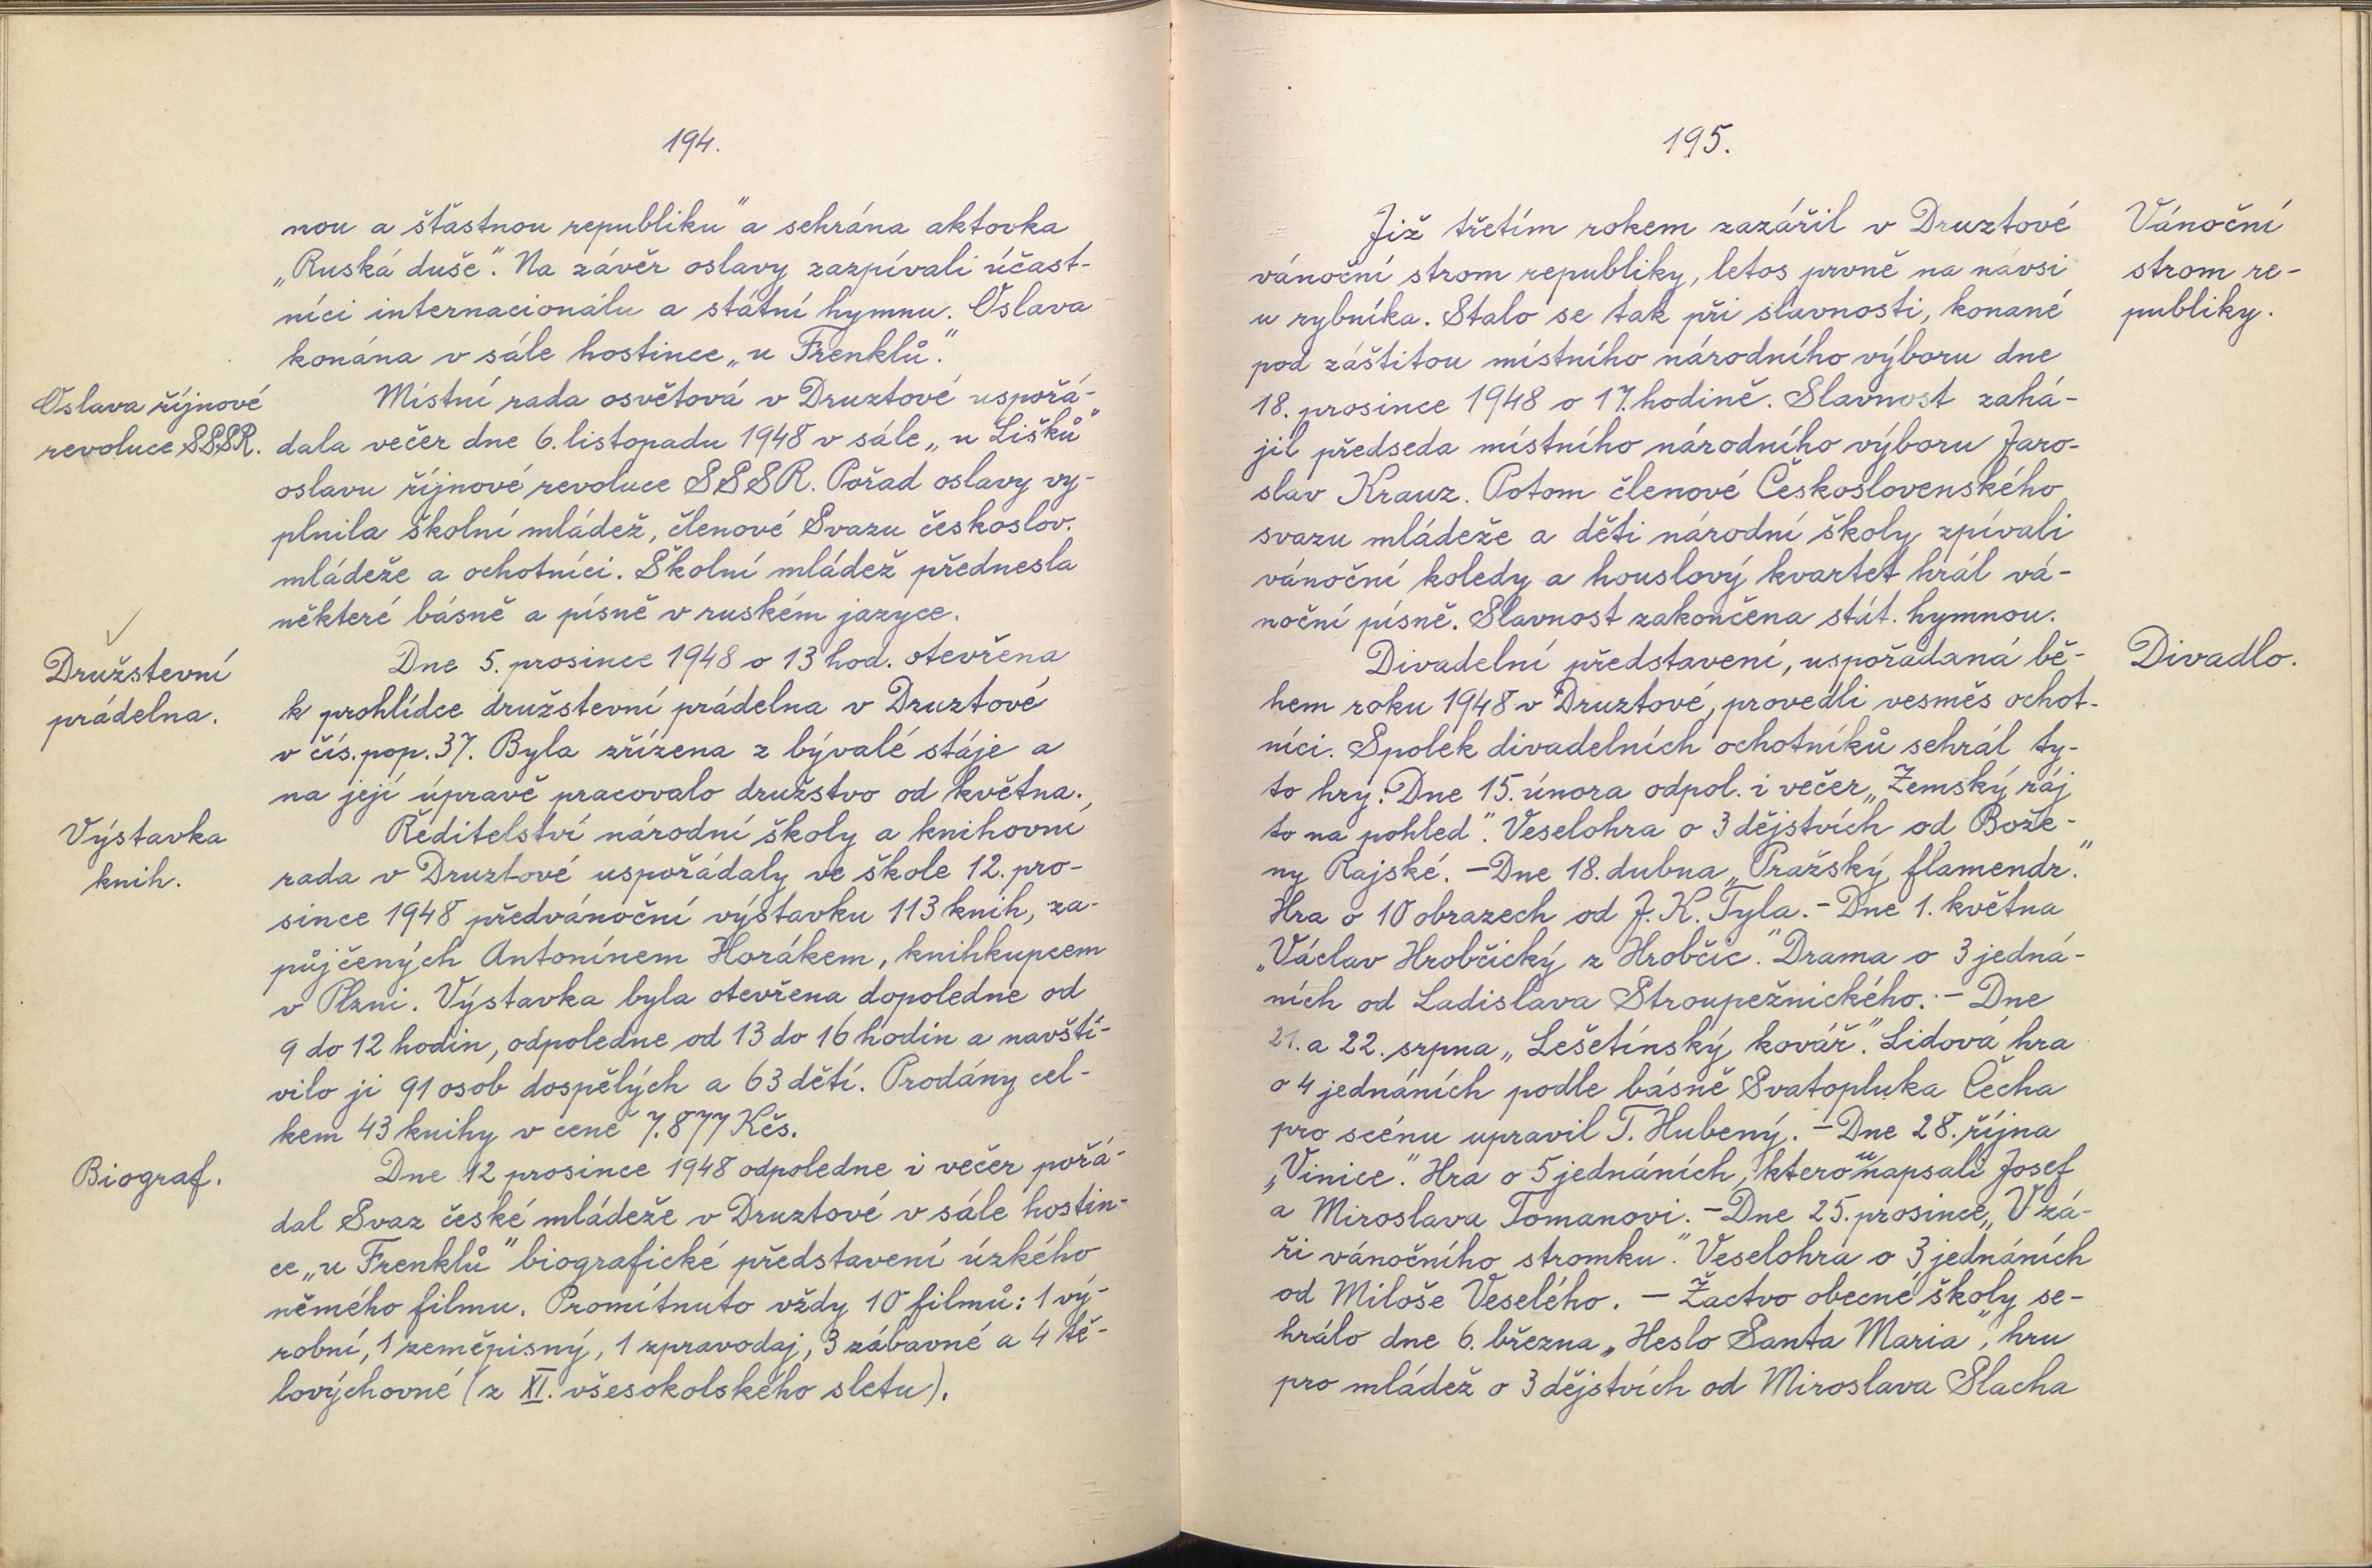 194.
nou a šťastnou republiku" a sehrána aktovka
„Ruská duše". Na závěr oslavy zazpívali účast-
níci internacionálu a státní hymnu. Oslava
konána v sále hostince „u Frenklů."
Oslava říjnové
revoluce SSSR.
Místní rada osvětová v Druztové uspořá-
dala večer dne 6. listopadu 1948 v sále „u Lišků"
oslavu říjnové revoluce SSSR. Pořad oslavy vy-
plnila školní mládež, členové Svazu českoslov.
mládeže a ochotníci. Školní mládež přednesla
některé básně a písně v ruském jazyce.
Družstevní
prádelna.
Dne 5. prosince 1948 o 13 hod. otevřena
k prohlídce družstevní prádelna v Druztové
v čís. pop. 37. Byla zřízena z bývalé stáje a
na její úpravě pracovalo družstvo od května.
Výstavka
knih.
Ředitelství národní školy a knihovní
rada v Druztové uspořádaly ve škole 12. pro-
since 1948 předvánoční výstavku 113 knih, za-
půjčených Antonínem Horákem, knihkupcem
v Plzni. Výstavka byla otevřena dopoledne od
9 do 12 hodin, odpoledne od 13 do 16 hodin a navští-
vilo ji 91 osob dospělých a 63 dětí. Prodány cel-
kem 43 knihy v ceně 7.877 Kčs.
Biograf.
Dne 12 prosince 1948 odpoledne i večer pořá-
dal Svaz české mládeže v Druztové v sále hostin-
ce „u Frenklů" biografické představení úzkého
němého filmu. Promítnuto vždy 10 filmů: 1 vý-
robní, 1 zeměpisný, 1 zpravodaj, 3 zábavné a 4 tě-
lovýchovné (z XI. všesokolského sletu).
195.
Již třetím rokem zazářil v Druztové
vánoční strom republiky, letos prvně na návsi
u rybníka. Stalo se tak při slavnosti, konané
pod záštitou místního národního výboru dne
18. prosince 1948 o 17. hodině. Slavnost zahá-
jil předseda místního národního výboru Jaro-
slav Krauz. Potom členové Československého
svazu mládeže a děti národní školy zpívali
vánoční koledy a houslový kvartet hrál vá-
noční písně. Slavnost zakončena stát. hymnou.
Vánoční
strom re-
publiky.
Divadelní představení, uspořádaná bě-
hem roku 1948 v Druztové, provedli vesměs ochot-
níci. Spolek divadelních ochotníků sehrál ty-
to hry: Dne 15. února odpol. i večer „Zemský ráj
to na pohled". Veselohra o 3 dějstvích od Bože-
ny Rajské. – Dne 18. dubna „Pražský flamendr."
Hra o 10 obrazech od J. K. Tyla. – Dne 1. května
„Václav Hrobčický z Hrobčic." Drama o 3 jedná-
ních od Ladislava Stroupežnického. – Dne
21. a 22. srpna „Lešetínský kovář." Lidová hra
o 4 jednáních podle básně Svatopluka Čecha
pro scénu upravil T. Hubený. – Dne 28. října
„Vinice". Hra o 5 jednáních, kterou napsali Josef
a Miroslava Tomanovi. – Dne 25. prosince „V zá-
ři vánočního stromku." Veselohra o 3 jednáních
od Miloše Veselého. – Žactvo obecné školy se-
hrálo dne 6. března „Heslo Santa Maria", hru
pro mládež o 3 dějstvích od Miroslava Slacha
Divadlo.